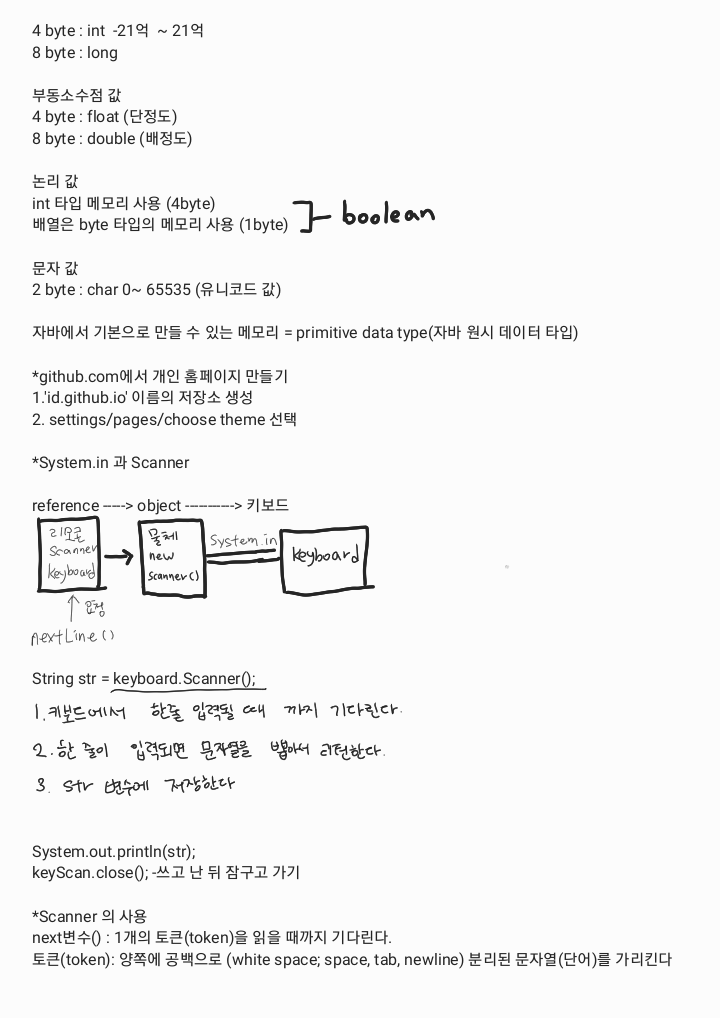 4 byte : int  -21억  ~ 21억
8 byte : long
부동소수점 값
4 byte : float (단정도)
8 byte : double (배정도)
논리 값
int 타입 메모리 사용 (4byte)
배열은 byte 타입의 메모리 사용 (1byte)
boolean
문자 값
2 byte : char 0~ 65535 (유니코드 값)
자바에서 기본으로 만들 수 있는 메모리 = primitive data type(자바 원시 데이터 타입)
*github.com에서 개인 홈페이지 만들기
1.'id.github.io' 이름의 저장소 생성
2. settings/pages/choose theme 선택
*System.in 과 Scanner
reference -----> object ----------> 키보드
리모콘
Scanner
keyboard
물체
new
Scanner()
System.in
keyboard
요청
nextLine()
String str = keyboard.Scanner();
1. 키보드에서 한줄 입력될 때 까지 기다린다.
2. 한 줄이 입력되면 문자열을 뽑아서 리턴한다.
3. str 변수에 저장한다
System.out.println(str);
keyScan.close(); -쓰고 난 뒤 잠구고 가기
*Scanner 의 사용
next변수() : 1개의 토큰(token)을 읽을 때까지 기다린다.
토큰(token): 양쪽에 공백으로 (white space; space, tab, newline) 분리된 문자열(단어)를 가리킨다